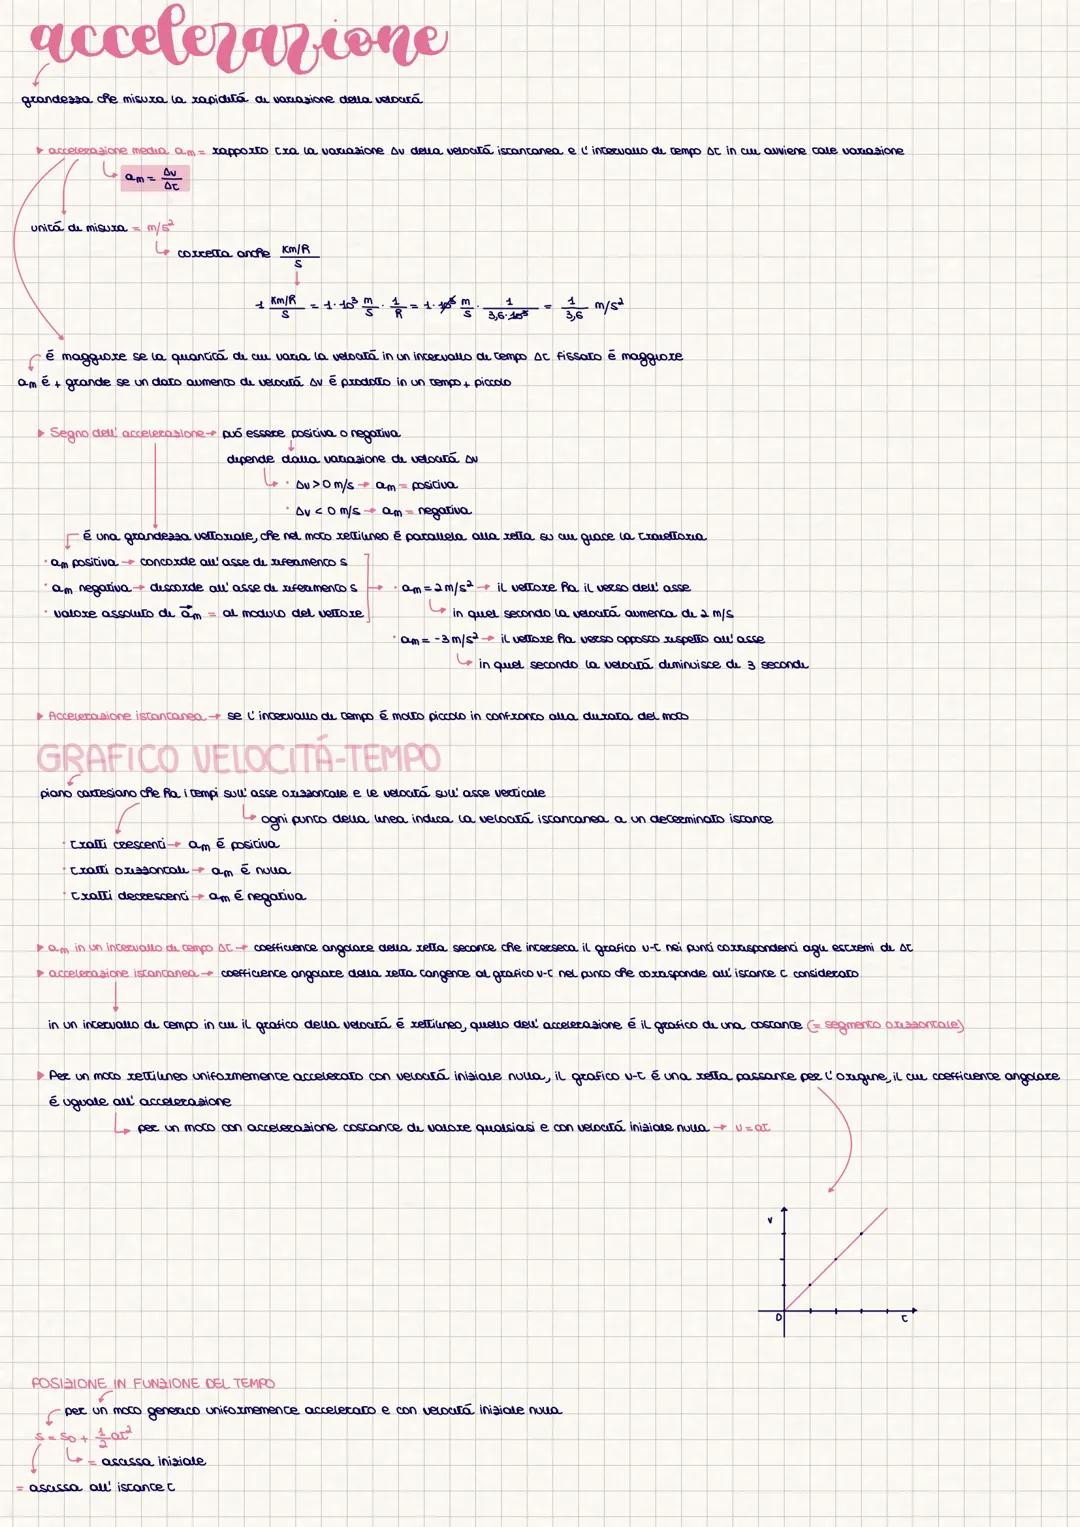 accelerazione
grandezza che misura la rapiditá di variazione della velocitá
▸ accelerazione media am = rapporto tra la variazione Δv della velocitá istantanea e l'intervallo di tempo Δt in cui avviene tale variazione
am = Δv/Δt
unitá di misura = m/s²
corretta anche Km/h / s
1 Km/h / s = 1·10³ m/s · 1/h = 1·10³ m/s · 1/3,6·10³ = 1/3,6 m/s²
é maggiore se la quantitá di cui varia la velocitá in un intervallo di tempo Δt fissato é maggiore
am é + grande se un dato aumento di velocitá Δv é prodotto in un tempo + piccolo
▸ Segno dell'accelerazione → puó essere positiva o negativa
dipende dalla variazione di velocitá Δv
· Δv > 0 m/s → am = positiva
· Δv < 0 m/s → am = negativa
é una grandezza vettoriale, che nel moto rettilineo é parallela alla retta su cui giace la traiettoria
· am positiva → concorde all'asse di riferimento s
· am negativa → discorde all'asse di riferimento s → · am = 2 m/s² → il vettore ha il verso dell'asse
· valore assoluto di am = al modulo del vettore
in quel secondo la velocitá aumenta di 2 m/s
· am = -3 m/s² → il vettore ha verso opposto rispetto all'asse
in quel secondo la velocitá diminuisce di 3 secondi
▸ Accelerazione istantanea → se l'intervallo di tempo é molto piccolo in confronto alla durata del moto
GRAFICO VELOCITÁ-TEMPO
piano cartesiano che ha i tempi sull'asse orizzontale e le velocitá sull'asse verticale
ogni punto della linea indica la velocitá istantanea a un determinato istante
· tratti crescenti → am é positiva
· tratti orizzontali → am é nulla
· tratti decrescenti → am é negativa
▸ am in un intervallo di tempo Δt → coefficiente angolare della retta secante che interseca il grafico v-t nei punti corrispondenti agli estremi di Δt
▸ accelerazione istantanea → coefficiente angolare della retta tangente al grafico v-t nel punto che corrisponde all'istante t considerato
in un intervallo di tempo in cui il grafico della velocitá é rettilineo, quello dell'accelerazione é il grafico di una costante (= segmento orizzontale)
▸ Per un moto rettilineo uniformemente accelerato con velocitá iniziale nulla, il grafico v-t é una retta passante per l'origine, il cui coefficiente angolare
é uguale all'accelerazione
per un moto con accelerazione costante di valore qualsiasi e con velocitá iniziale nulla → v = at
v
0
t
POSIZIONE IN FUNZIONE DEL TEMPO
per un moto generico uniformemente accelerato e con velocitá iniziale nulla
s = s0 + 1/2 at²
= ascissa iniziale
= ascissa all'istante t